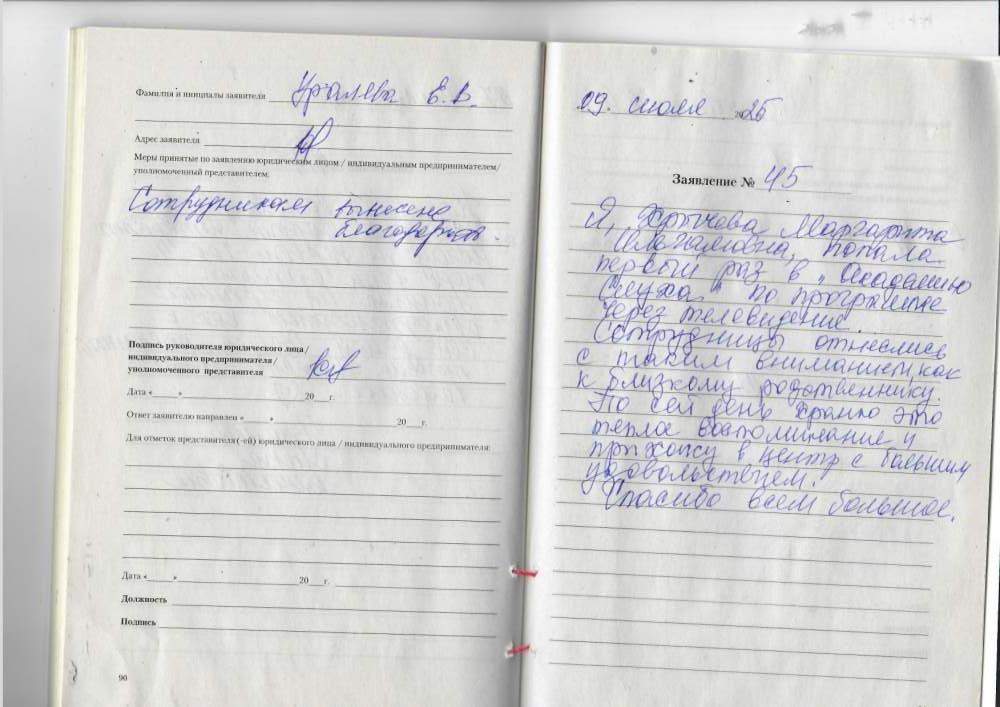 Фамилия и инициалы заявителя Уралева Е.В.
Адрес заявителя
Меры принятые по заявлению юридическим лицом / индивидуальным предпринимателем/
уполномоченным представителем:
Сотрудникам вынесена
благодарность.
Подпись руководителя юридического лица /
индивидуального предпринимателя /
уполномоченного представителя
Дата «____»____ 20___г.
Ответ заявителю направлен «____»____ 20___г.
Для отметок представителя(-ей) юридического лица / индивидуального предпринимателя:
Дата «____»____ 20___г.
Должность
Подпись
90
09. июля 2025
Заявление № 45
Я, Маргарита
попала
первый раз в „Академию
Слуха" по программе
через телевидение.
Сотрудницы отнеслись
с таким вниманием, как
к близкому родственнику.
По сей день храню это
теплое воспоминание и
прихожу в центр с большим
удовольствием.
Спасибо всем большое.